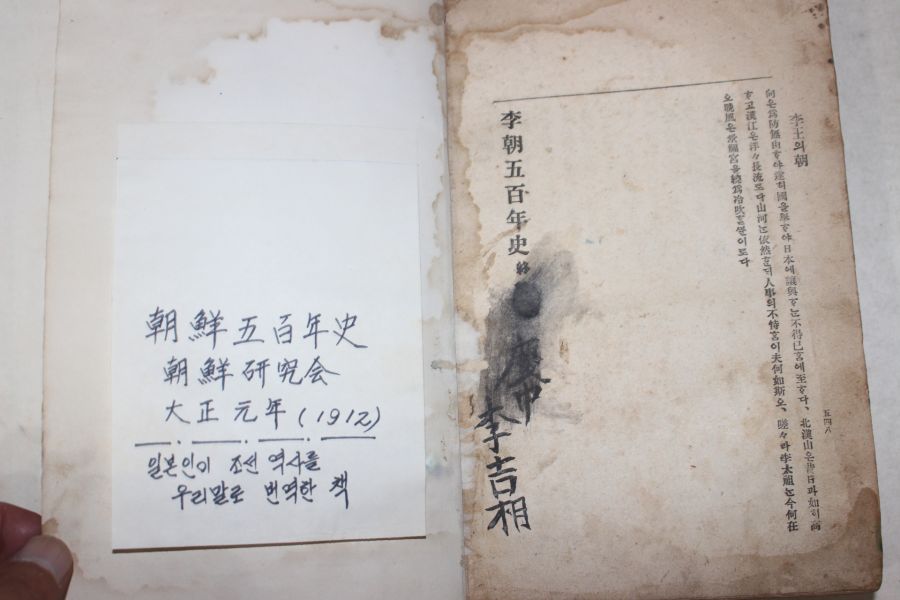 朝鮮五百年史
朝鮮研究会
大正元年(1912)
일본인이 조선 역사를
우리말로 번역한 책
李王의朝
五四八
國을擧ᄒᆞ야日本에讓與ᄒᆞᄂᆞᆫ不得已ᄒᆞᆷ에至ᄒᆞ다、北漢山은昔日과如히高
ᄒᆞ고漢江은洋々長流ᄒᆞ도다山河ᄂᆞᆫ依然ᄒᆞᆫᄃᆡ人事의不恃ᄒᆞᆷ이夫何如斯오、噫々라李太祖ᄂᆞᆫ今何在
오曉風은景福宮을
李朝五百年史 終
李吉相